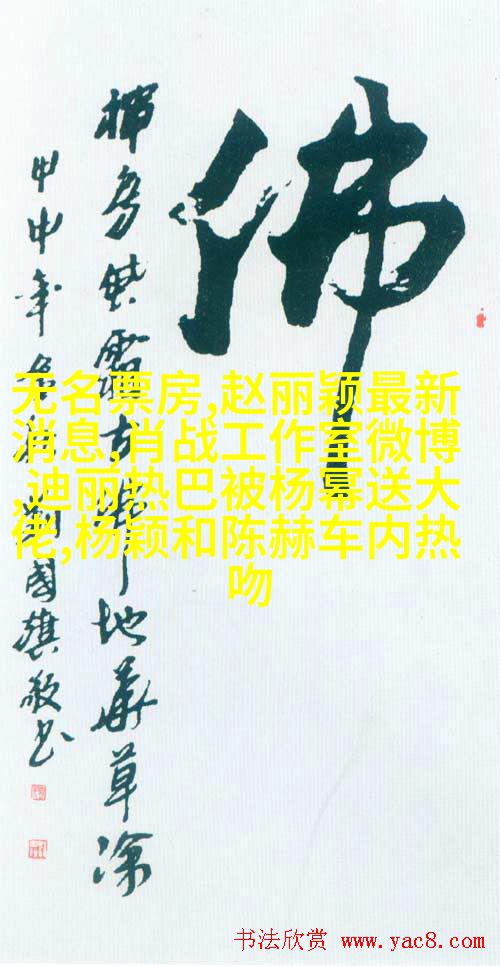 佛
地草
甲申年國旗敬书
无名票房,赵丽颖最新
消息,肖战工作室微博
,迪丽热巴被杨幂送大
佬,杨颖和陈赫车内热
吻
书法欣赏 www.yac8.com